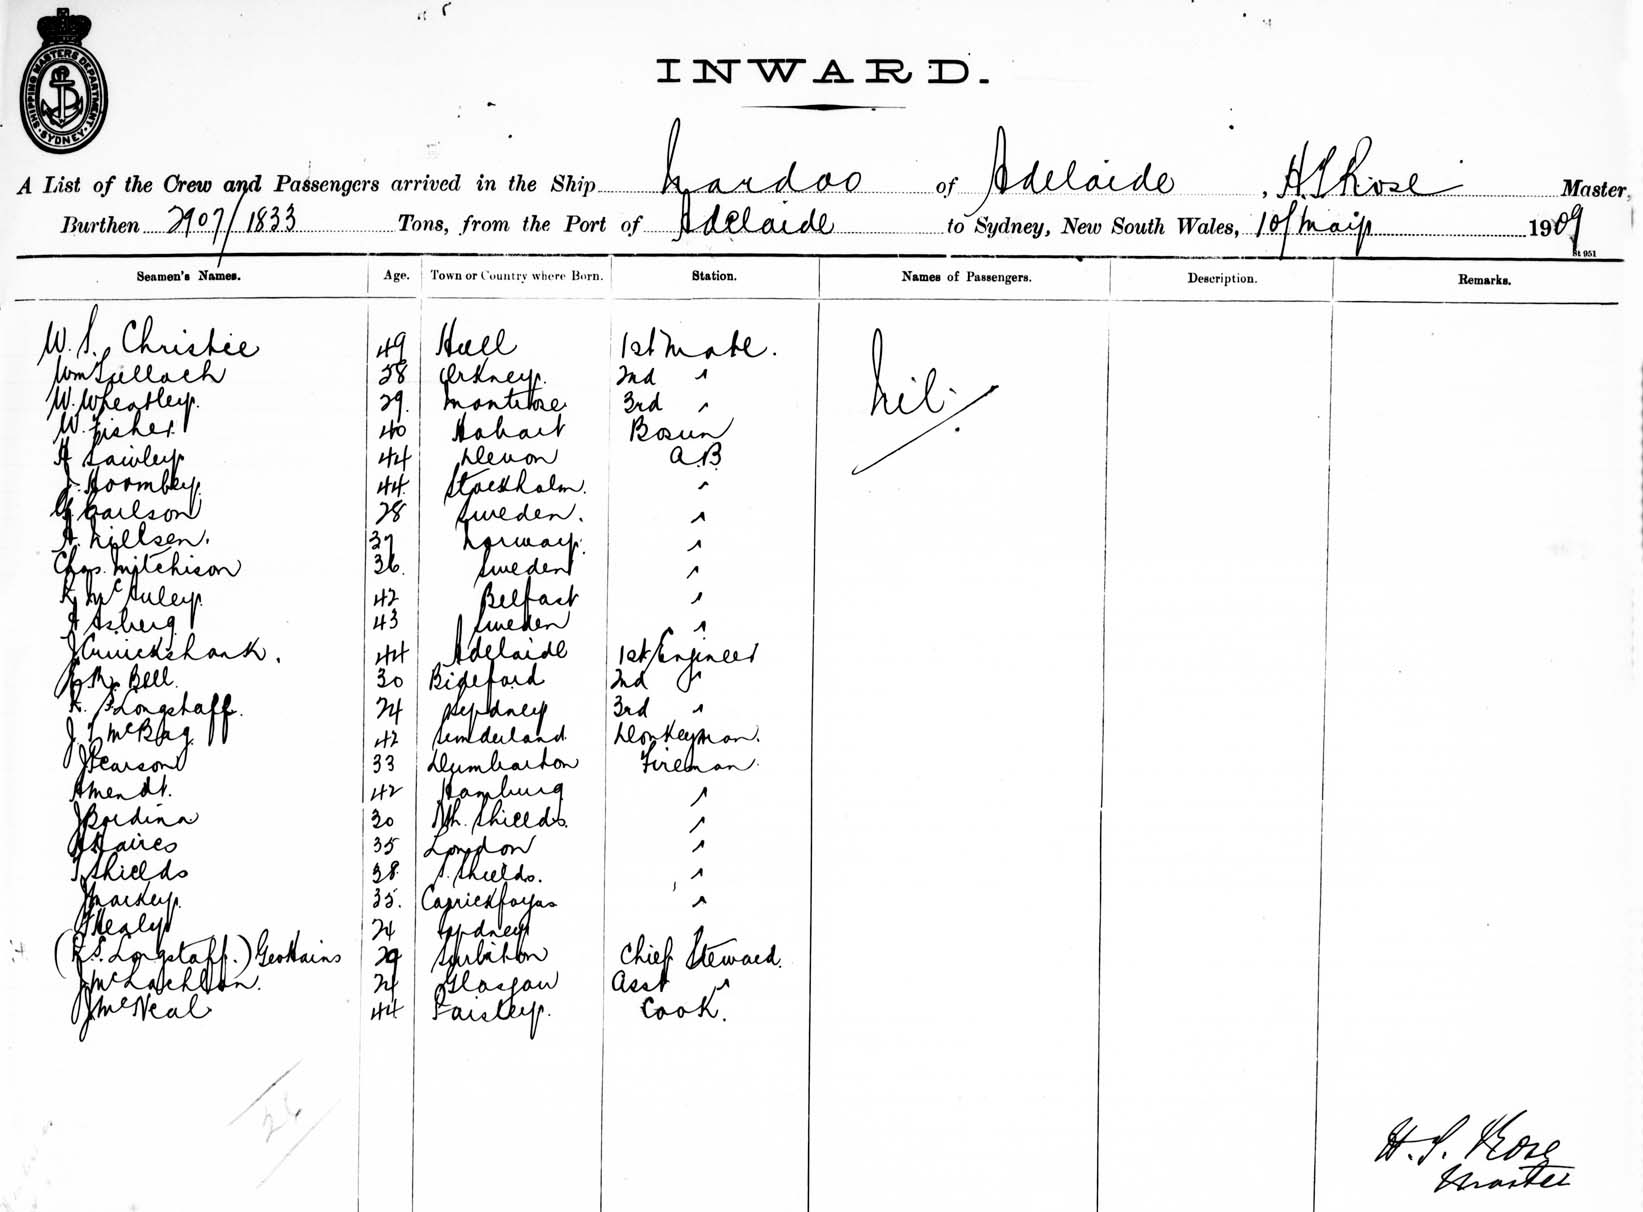 SHIPPING MASTERS DEPARTMENT · SYDNEY ·
INWARD.
A List of the Crew and Passengers arrived in the Ship Nardoo of Adelaide, H S Rose Master,
Burthen 2907/1833 Tons, from the Port of Adelaide to Sydney, New South Wales, 1 of May 1909
St 951
Seamen's Names. Age. Town or Country where Born. Station. Names of Passengers. Description. Remarks.
W. S. Christie 49 Hull 1st Mate. Nil.
Wm Tulloch 28 Orkney. 2nd "
W. Wheatley. 29. Montrose 3rd "
W. Fisher. 40 Hobart Bosun
44 Devon A.B
J. Hoornbey. 44. Stockholm. "
Carlson 28 Sweden. "
A. Nillsen. 37 Norway. "
Chas. Mitchison 36. Sweden "
McAuley. 42 Belfast "
A Asberg 43 Sweden "
J Cruickshank. 44 Adelaide 1st Engineer
M. Bell. 30 Bideford 2nd "
Longstaff. 24 Sydney 3rd "
J. 42 Sunderland Donkeyman.
J Pearson 33 Dumbarton Fireman.
Amendt. 42 Hamburg "
J Bordina 30 Nh. Shields. "
35 London "
T Shields 38. S. Shields. "
J Markey. 35. "
T Healy 24 Sydney
(R. S. Longstaff.) Geo Hains 29 Surbiton Chief Steward.
J McLachlan. 24 Glasgow Asst "
J McNeal 44 Paisley. Cook.
26
H. S. Rose
Master